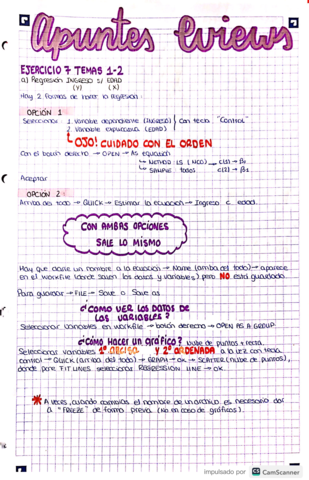 Apuntes Eviews
EJERCICIO 7 TEMAS 1-2
a) Regresión INGRESO s/ EDAD
(Y) (X)
Hay 2 formas de hacer la regresión:
OPCIÓN 1
Seleccionar 1. variable dependiente (INGRESO) con tecla "Control"
2. variable explicativa (EDAD)
¡OJO! CUIDADO CON EL ORDEN
Con el botón derecho → OPEN → AS equation
↳ METHOD: LS (MCO) c(1) → β0
↳ SAMPLE: todos c(2) → β1
Aceptar
OPCIÓN 2
Arriba del todo → QUICK → Estimar la ecuación → Ingreso c edad
CON AMBAS OPCIONES
SALE LO MISMO
Hay que darle un nombre a la ecuación → Name (arriba del todo) → aparece
en el workfile (donde salen los datos y variables) pero NO está guardado.
Para guardar → FILE → Save o Save as
¿CÓMO VER LOS DATOS DE
LAS VARIABLES?
Seleccionar variables en workfile → botón derecho → OPEN AS A GROUP
¿CÓMO HACER UN GRÁFICO? Nube de puntos + recta.
Seleccionas variables 1º ABCISA Y 2º ORDENADA a la vez con tecla
control → QUICK (arriba del todo) → GRAPH → ok → SCATTER (nube de puntos),
donde pone FIT LINES seleccionar REGRESSION LINE → ok.
* A veces, cuando cambias el nombre de un archivo es necesario dar
a "FREEZE" de forma previa (No en caso de gráficos).
impulsado por CS CamScanner